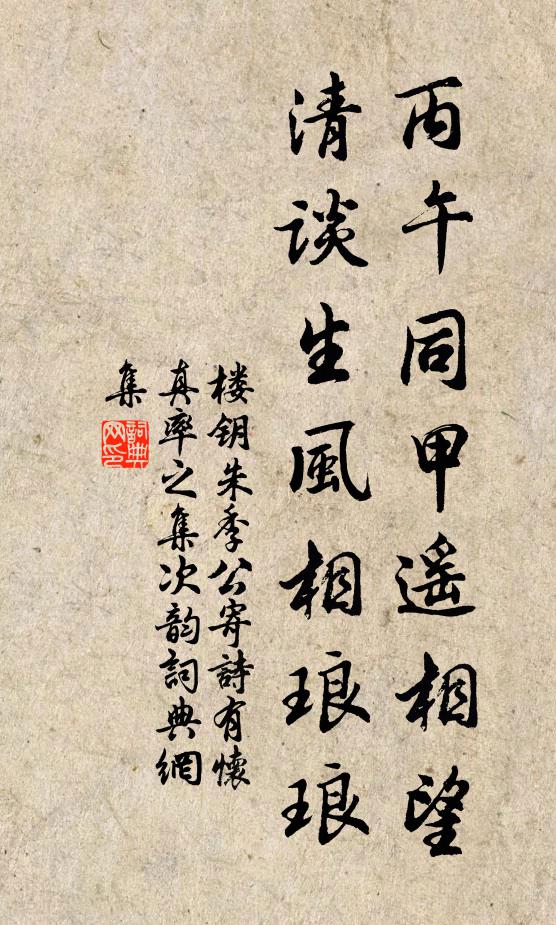 丙午同甲遥相望
清談生風相琅琅
楼钥朱季公寄詩有懷
真率之集次韵詞典網
集
詞典
网印